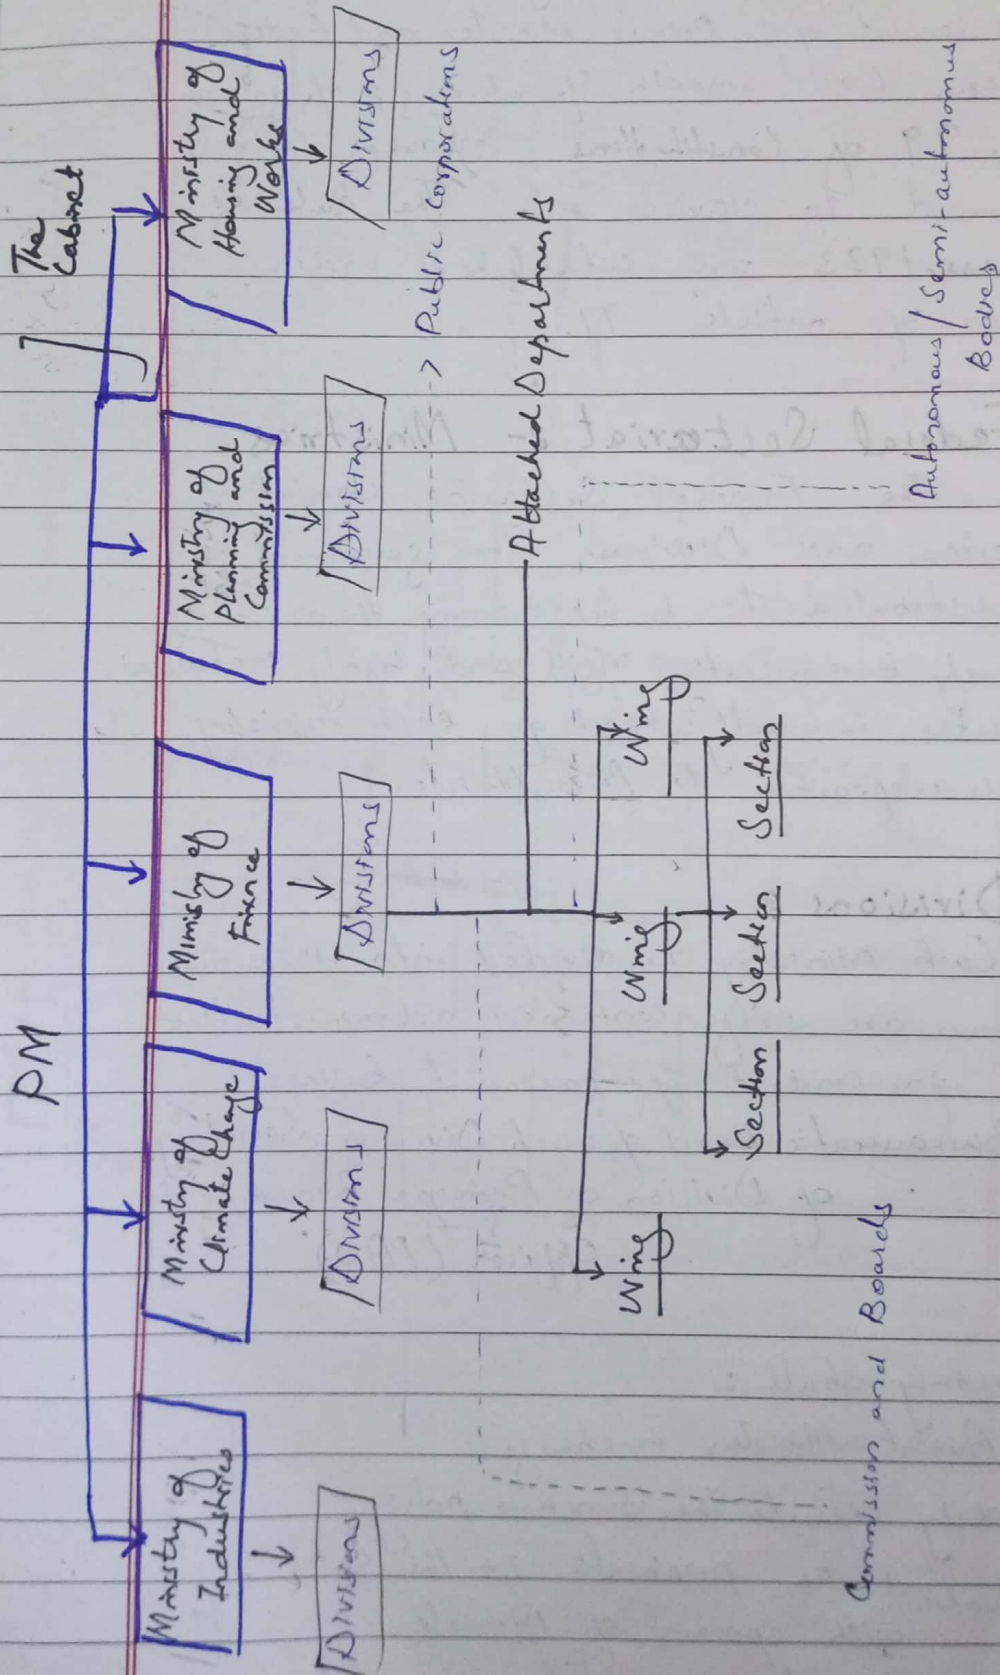 PM
The
Cabinet
Ministry of
Industries
Ministry of
Climate Change
Mimistry of
Finance
Ministry of
Planning and
Commission
Ministry of
Housing and
Works
Divisions
Divisions
Divisions
Divisions
Divisions
Public Corporations
Attached Departments
Wing
Wing
Wing
Section
Section
Section
Commission and Boards
Autonomous / Semi-autonomus
Bodies